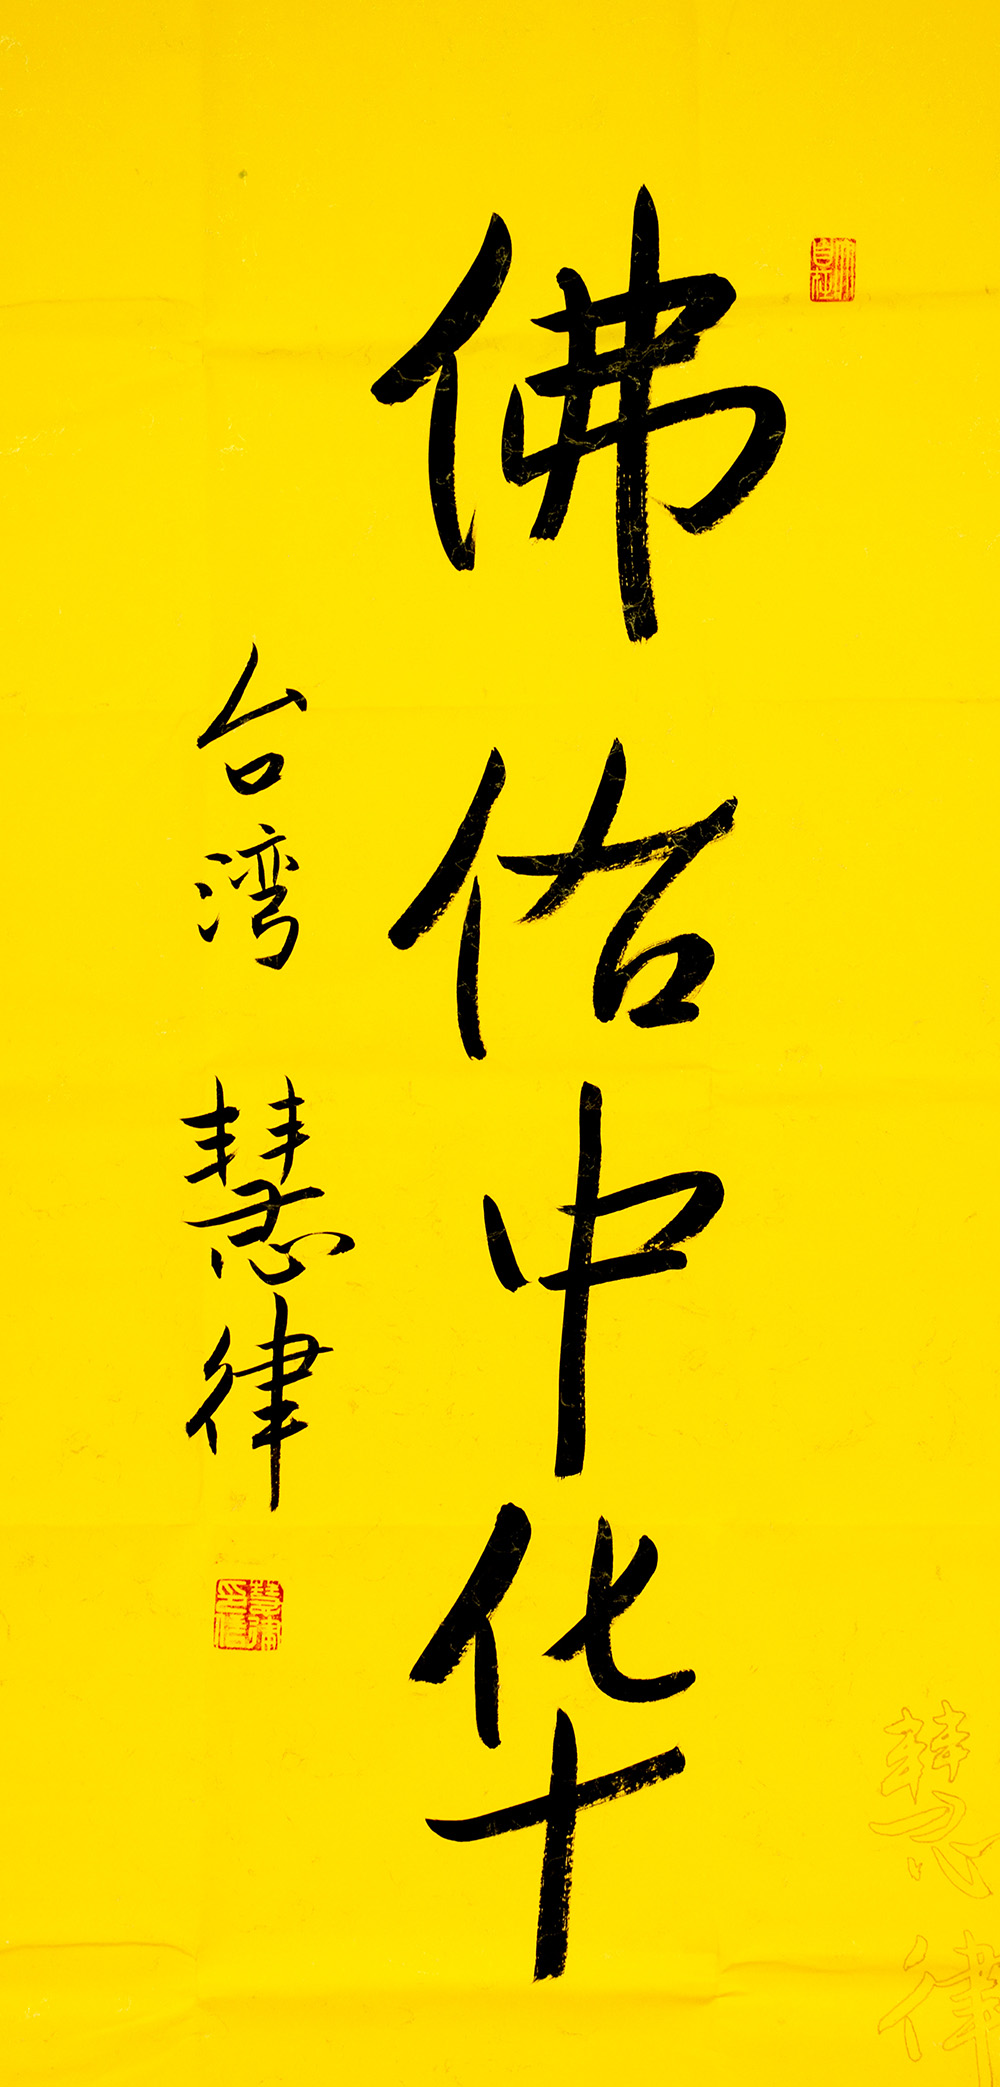 佛佑中华
台湾 慧律
慧律